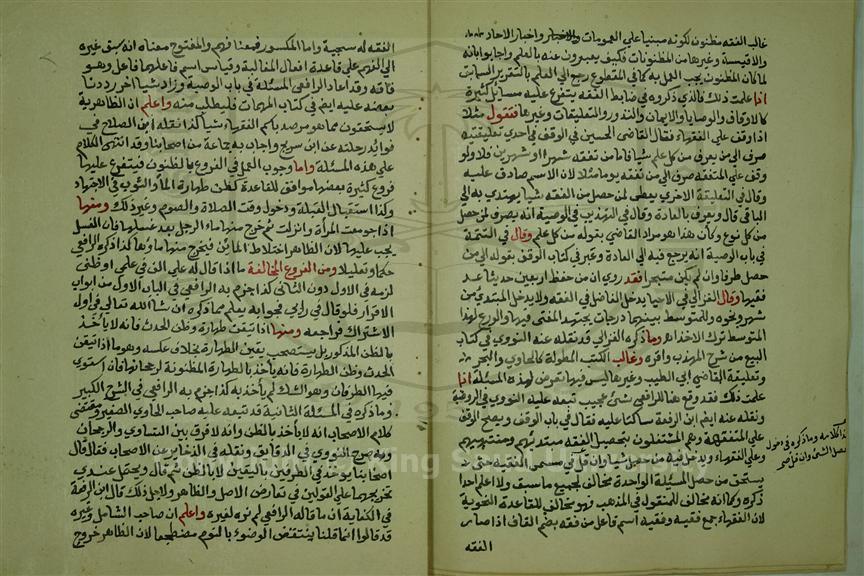 غالب الفقه مظنون لكونه مبنيا على العمومات والاخبار واخبار الاحاد
والاقيسة وغيرها من المظنونات فكيف يعبرون عنه بالعلم واجابوا بانه
لما كان المظنون يجب العمل به كما في المقطوع رجع الى العلم بالتقرير السابق
اذا علمت ذلك فالذي ذكروه في ضابط الفقه يتفرع عليه مسايل كثيرة
كالاوقاف والوصايا والايمان والنذور والتعليقات وغيرها فنقول مثلا
اذا وقف على الفقهاء فقال القاضي الحسين في الوقف في احدي تعليقتيه
صرف الى من يعرف من كل علم شيا فاما من تفقه شهرا او شهرين فلا ولو
وقف على المتفقه صرف الى من تفقه يوما مثلا لان الاسم صادق عليه
وقال في التعليقة الاخري يعطى لمن حصل من الفقه شيا يهتدي به الى
الباقي قال ويعرف بالعادة وقال في التهذيب في الوصية انه يصرف لمن حصل
من كل نوع وكأن هذا هو مراد القاضي بقوله من كل علم وقال في التتمة
في باب الوصية انه يرجع فيه الى العادة وعبر في كتاب الوقف بقوله الى من
حصل طرفا وان لم يكن متبحرا فقد روي ان من حفظ اربعين حديثا عد
فقيها وقال الغزالي في الاحيا يدخل الفاضل في الفقه ولا يدخل المبتدئ من
شهر ونحوه وللمتوسط بينهما درجات يجتهد المفتى فيها والورع لهذا
المتوسط ترك الاخذ وما ذكره الغزالي قد نقله عنه النووي في كتاب
البيع من شرح المهذب واقره وغالب الكتب المطولة كالحاوي والبحر
وتعليقة القاضي ابي الطيب وغيرها ليس فيها تعرض لهذه المسئلة اذا
علمت ذلك فقد وقع هنا للرافعي شئ عجيب تبعه عليه النووي في الروضة
ونقله عنه ايضا ابن الرفعة ساكتا عليه فقال في باب الوقف ويصح الوقف
على المتفقهة وهم المشتغلون بتحصيل الفقه مبتدئهم ومنتهيهم
وعلى الفقهاء ويدخل فيه من حصل شيا وان قل في مسمى الفقيه حتى
يستحق من حصل المسئلة الواحدة مخالف لجميع ما سبق ولا اعلم احدا
ذكره وكما انه مخالف للمنقول في المذهب فهو مخالف للقاعدة النحوية
لان الفقهاء جمع فقيه وفقيه اسم فاعل من فقه بضم القاف اذا صار
الفقه
الفقه له سجية واما المكسور فمعناه فهم والمفتوح معناه انه سبق غيره
الى الفهم على قاعدة افعال المغالبة وقياس اسم فاعلهما فاعل وهو
فاقه وقد اعاد الرافعي المسئلة في باب الوصية وزاد شيا اخر رددنا
بعضه عليه ايضا في كتاب المهمات فليطلب منه واعلم ان الظاهرية
لا يستحقون مما هو مرصد باسم الفقهاء شيا كذا نقله ابن الصلاح في
فوائد رحلته عن ابن سريج واجاب به جماعة من اصحابنا وقد انتهى الكلام
على هذه المسئلة واما وجوب العمل في الفروع بالظنون فيتفرع عليها
فروع كثيرة بعضها موافق للقاعدة كظن طهارة الما والثوب في الاجتهاد
ولذا استقبال القبلة ودخول وقت الصلاة والصوم وغير ذلك ومنها
اذا جومعت المرأة وانزلت ثم خرج منها ماء الرجل بعد غسلها فان الغسل
يجب عليها لان الظاهر اختلاط المائين فيخرج منها ماؤها كذا ذكره الرافعي
حكما وتعليلا ومن الفروع المخالفة ما اذا قال له على الف في علمي او ظني
لزمه في الاول دون الثاني كذا جزم به الرافعي في الباب الاول من ابواب
الاقرار فلو قال في رأيي فجوابه يعلم مما ذكره ان شا الله تعالى في اوله
الاشتراك فراجعه ومنها اذا تيقن طهارة وظن الحدث فانه لا يأخذ
بالظن المذكور بل يستصحب يقين الطهارة بخلاف عكسه وهو ما اذا تيقن
الحدث وظن الطهارة فانه يأخذ بالطهارة المظنونة لرجحانها فان استوي
فيها الطرفان وهو الشك لم يأخذ به كذا جزم به الرافعي في الشرح الكبير
وما ذكره في المسئلة الثانية قد تبعه عليه صاحب الحاوي الصغير ومقتضى
كلام الاصحاب انه لا يأخذ بالظن وانه لا فرق بين التساوي والرجحان
وبه صرح النووي في الدقايق ونقله في الذخاير عن الاصحاب فقال قال
اصحابنا يوخذ في الطرفين باليقين لا بالظن ثم قال ويحتمل عندي
تخريجهما على القولين في تعارض الاصل والظاهر ولاجل ذلك قال ابن الرفعة
في الكفاية ان ما قاله الرافعي لم نره لغيره واعلم ان صاحب الشامل وغيره
قد قالوا انما قلنا ينتقض الوضوء بالنوم مضطجعا لان الظاهر خروج